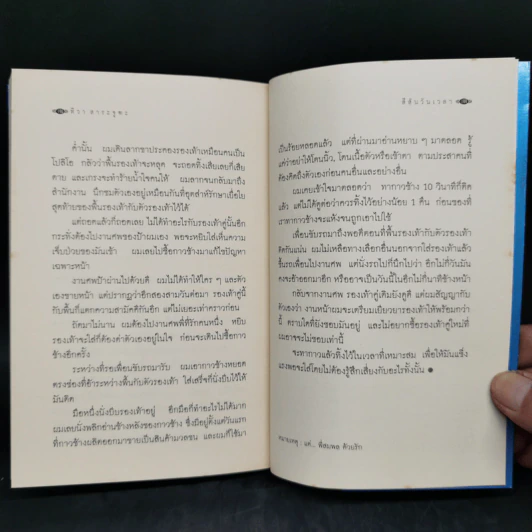 ทิวา สาระจูฑะ
ค่ำนั้น ผมเดินลากขาประคองรองเท้าเหมือนคนเป็น
โปลิโอ กลัวว่าพื้นรองเท้าจะหลุด จะถอดทิ้งเสียเลยก็เสีย
ดาย และเกรงจะทำร้ายน้ำใจคนให้ ผมลากจนกลับมาถึง
สำนักงาน นึกชมตัวเองอยู่เหมือนกันที่อุตส่าห์รักษาเยื่อใย
สุดท้ายของพื้นรองเท้ากับตัวรองเท้าไว้ได้
แต่ถอดแล้วก็ถอดเลย ไม่ได้ทำอะไรกับรองเท้าคู่นั้นอีก
กระทั่งต้องไปงานศพของป้าผมเอง พอจะหยิบใส่เห็นความ
เจ็บป่วยของมันเข้า ผมเลยไปซื้อกาวช้างมาแก้ไขปัญหา
เฉพาะหน้า
งานศพป้าผ่านไปด้วยดี ผมไม่ได้ทำให้ใคร ๆ และตัว
เองขายหน้า แต่ปรากฏว่าอีกสองสามวันต่อมา รองเท้าคู่นี้
กับพื้นก็แตกความสามัคคีกันอีก แต่ไม่เยอะเท่าคราวก่อน
ถัดมาไม่นาน ผมต้องไปงานศพพี่ที่รักคนหนึ่ง หยิบ
รองเท้าจะใส่ก็ต้องด่าตัวเองอยู่ในใจ ก่อนจะเดินไปซื้อกาว
ช้างอีกครั้ง
ระหว่างที่รอเพื่อนขับรถมารับ ผมเอากาวช้างหยอด
ตรงช่องที่อ้าระหว่างพื้นกับตัวรองเท้า ใส่เสร็จก็นั่งบีบไว้ให้
มันติด
มือหนึ่งนั่งบีบรองเท้าอยู่ อีกมือก็ทำอะไรไม่ได้มาก
ผมเลยนั่งพลิกอ่านข้างหลังของกาวช้าง ซึ่งมีอยู่ตั้งแต่วันแรก
ที่กาวช้างผลิตออกมาขายเป็นสินค้ามวลชน และผมก็ใช้มา
สีสันวันเวลา
เป็นร้อยหลอดแล้ว แต่ที่ผ่านมาอ่านหยาบ ๆ มาตลอด รู้
แต่ว่าอย่าให้โดนนิ้ว, โดนเนื้อตัวหรือเข้าตา ตามประสาคนที่
ต้องคิดถึงตัวเองก่อนคนอื่นและอย่างอื่น
ผมเคยเข้าใจมาตลอดว่า ทากาวช้าง 10 วินาทีก็ติด
แล้ว แต่ไม่ได้ดูต่อว่าควรทิ้งไว้อย่างน้อย 1 คืน ก่อนของที่
เราทากาวช้างจะแห้งจนถูกเอาไปใช้
เพื่อนขับรถมาถึงพอดีตอนที่พื้นรองเท้ากับตัวรองเท้า
ติดกันแน่น ผมไม่เหลือทางเลือกอื่นนอกจากใส่รองเท้าแล้ว
ขึ้นรถเพื่อนไปงานศพ แต่นั่งรถไปก็นึกไปว่า อีกไม่กี่วันมัน
คงจะอ้าออกมาอีก หรืออาจเป็นวันนี้ในอีกไม่กี่นาทีข้างหน้า
กลับจากงานศพ รองเท้าคู่เดิมยังดูดี แต่ผมสัญญากับ
ตัวเองว่า งานหน้าผมจะเตรียมเยียวยารองเท้าให้พร้อมกว่า
นี้ ตราบใดที่ยังชอบมันอยู่ และไม่อยากซื้อรองเท้าคู่ใหม่ที่
ผมอาจจะไม่ชอบเท่านี้
จะทากาวแล้วทิ้งไว้ในเวลาที่เหมาะสม เพื่อให้มันแข็ง
แรงพอจะใส่โดยไม่ต้องรู้สึกเสี่ยงกับอะไรทั้งนั้น ●
หมายเหตุ : แด่... พี่สมพล ด้วยรัก